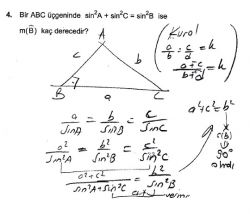 4. Bir ABC üçgeninde sin²A + sin²C = sin²B ise
m(B̂) kaç derecedir?
Kural
a/b = c/d = k
a+c/b+d = k
A
c b
B a C
a²+c²=b²
a/SinA = b/SinB = c/SinC
s(B)
90°
a²/Sin²A = b²/Sin²B = c²/Sin²C
a²+c²/Sin²A+Sin²C = b²/Sin²B